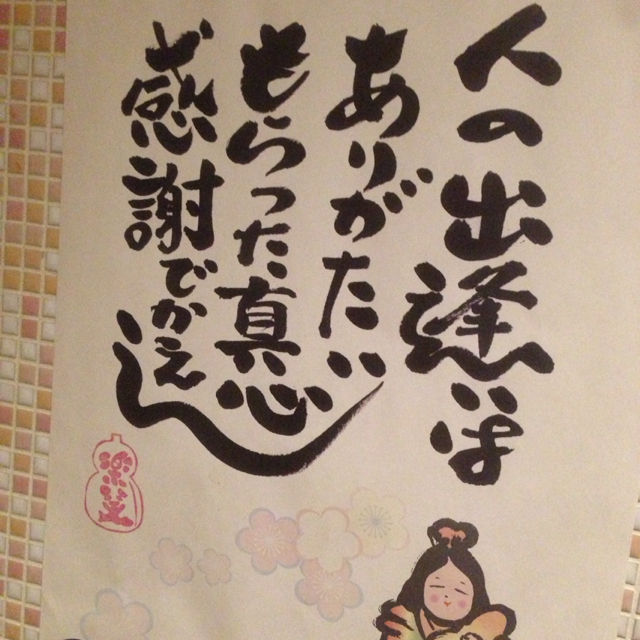 人の出逢いは
ありがたい
もらった真心
感謝でかえし